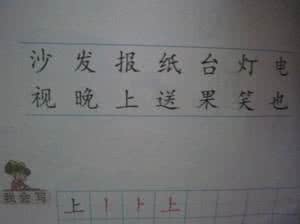 沙 发 报 纸 台 灯 电
视 晚 上 送 果 笑 也
我会写
上